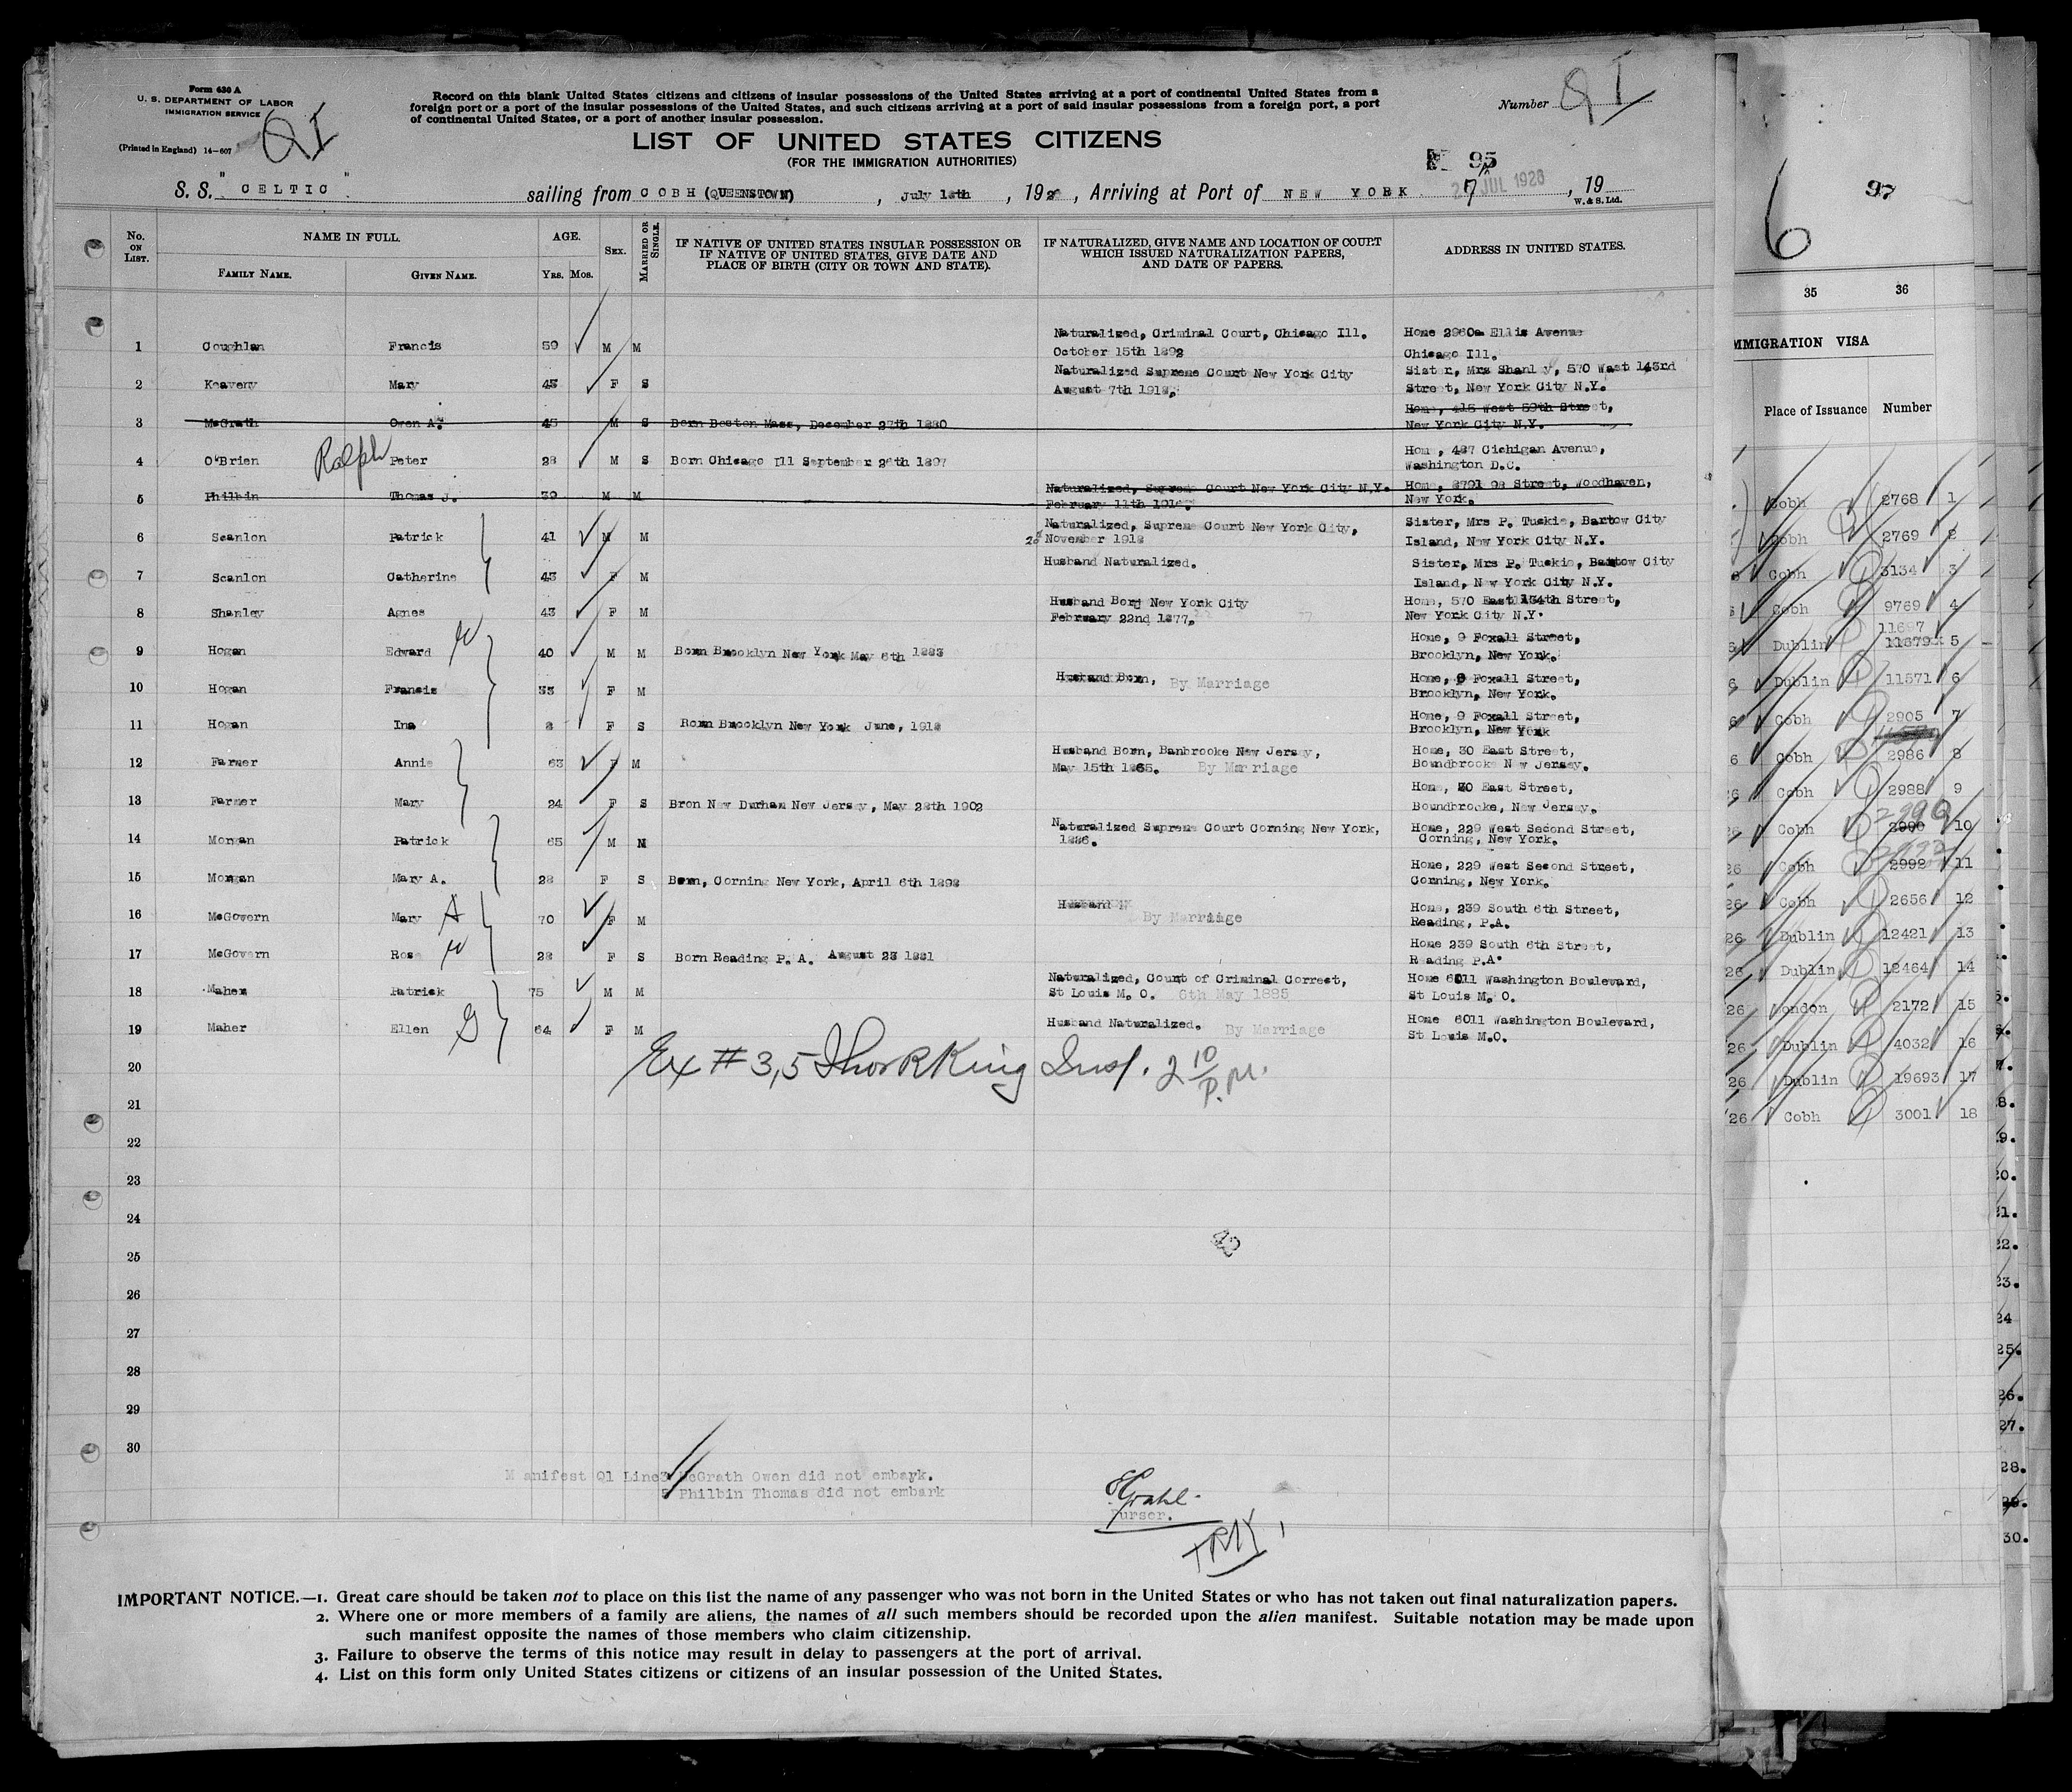 Form 630 A
U. S. DEPARTMENT OF LABOR
IMMIGRATION SERVICE
(Printed in England) 14—607
QI
Record on this blank United States citizens and citizens of insular possessions of the United States arriving at a port of continental United States from a
foreign port or a port of the insular possessions of the United States, and such citizens arriving at a port of said insular possessions from a foreign port, a port
of continental United States, or a port of another insular possession.
Number QI
LIST OF UNITED STATES CITIZENS
(FOR THE IMMIGRATION AUTHORITIES)
95
S. S. "CELTIC" sailing from COBH (QUEENSTOWN), July 18th, 192, Arriving at Port of NEW YORK 7 JUL 1926, 19
W. & S. Ltd.
No. ON LIST. NAME IN FULL. AGE. SEX. MARRIED OR SINGLE. IF NATIVE OF UNITED STATES INSULAR POSSESSION OR IF NATIVE OF UNITED STATES, GIVE DATE AND PLACE OF BIRTH (CITY OR TOWN AND STATE). IF NATURALIZED, GIVE NAME AND LOCATION OF COURT WHICH ISSUED NATURALIZATION PAPERS, AND DATE OF PAPERS. ADDRESS IN UNITED STATES.
FAMILY NAME. GIVEN NAME. YRS. MOS.
1 Coughlan Francis 59 M M Naturalized, Criminal Court, Chicago Ill. October 15th 1892 Home 2960a Ellis Avenue Chicago Ill.
2 Keaveny Mary 45 F S Naturalized Supreme Court New York City August 7th 1918, Sister, Mrs Shanley, 570 West 143rd Street, New York City N.Y.
3 McGrath Owen A. 45 M S Born Boston Mass, December 27th 1880 Home, 415 West 59th Street, New York City N.Y.
4 O'Brien Ralph Peter 28 M S Born Chicago Ill September 26th 1897 Home, 487 Cichigan Avenue, Washington D.C.
5 Philbin Thomas J. 39 M M Naturalized, Supreme Court New York City N.Y. February 11th Home, 8791 98 Street, Woodhaven, New York.
6 Scanlon Patrick 41 M M Naturalized, Supreme Court New York City, November 1918 Sister, Mrs P. Tuckie, Bartow City Island, New York City N.Y.
7 Scanlon Catherine 43 F M Husband Naturalized. Sister, Mrs P. Tuckie, Bartow City Island, New York City N.Y.
8 Shanley Agnes 43 F M Husband Born New York City February 22nd 1877, Home, 570 East 134th Street, New York City N.Y.
9 Hogan Edward W 40 M M Born Brooklyn New York May 6th 1883 Home, 9 Foxall Street, Brooklyn, New York.
10 Hogan Francis 33 F M Husband Born, By Marriage Home, 9 Foxall Street, Brooklyn, New York.
11 Hogan Ina 8 F S Born Brooklyn New York June, 1918 Home, 9 Foxall Street, Brooklyn, New York
12 Farmer Annie 63 F M Husband Born, Banbrooke New Jersey, May 15th 1865. By Marriage Home, 30 East Street, Boundbrooke New Jersey.
13 Farmer Mary 24 F S Bron New Durham New Jersey, May 28th 1902 Home, 30 East Street, Boundbrooke, New Jersey.
14 Morgan Patrick 65 M M Naturalized Supreme Court Corning New York, 1886. Home, 229 West Second Street, Corning, New York.
15 Morgan Mary A. 28 F S Born, Corning New York, April 6th 1898 Home, 229 West Second Street, Corning, New York.
16 McGovern Mary A 70 F M Husband By Marriage Home, 239 South 6th Street, Reading, P.A.
17 McGovern Rose W 28 F S Born Reading P. A. August 23 1881 Home 239 South 6th Street, Reading P.A.
18 Maher Patrick 75 M M Naturalized, Court of Criminal Correct, St Louis M. O. 6th May 1885 Home 6011 Washington Boulevard, St Louis M. O.
19 Maher Ellen G 64 F M Husband Naturalized. By Marriage Home 6011 Washington Boulevard, St Louis M.O.
20
Ex # 3,5 Thor R King Insp. 2 10 P.M.
21
22
23
24
25
26
27
28
29
30
42
Manifest Q1 Line3 McGrath Owen did not embark.
5 Philbin Thomas did not embark
Purser.
TRK
IMPORTANT NOTICE.—1. Great care should be taken not to place on this list the name of any passenger who was not born in the United States or who has not taken out final naturalization papers.
2. Where one or more members of a family are aliens, the names of all such members should be recorded upon the alien manifest. Suitable notation may be made upon
such manifest opposite the names of those members who claim citizenship.
3. Failure to observe the terms of this notice may result in delay to passengers at the port of arrival.
4. List on this form only United States citizens or citizens of an insular possession of the United States.
6 97
35 36
IMMIGRATION VISA
Place of Issuance Number
Cobh 2768 1
Cobh 2769 2
Cobh 3134 3
Cobh 9769 4
11697
Dublin 11679 5
Dublin 11571 6
Cobh 2905 7
Cobh 2986 8
Cobh 2988 9
2990
Cobh 2990 10
2992
Cobh 2992 11
Cobh 2656 12
Dublin 12421 13
Dublin 12464 14
London 2172 15
Dublin 4032 16
Dublin 19693 17
Cobh 3001 18